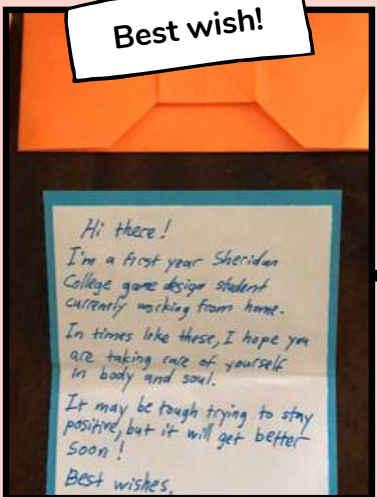 Best wish!
Hi there!
I'm a first year Sheridan
College game design student
currently working from home.
In times like these, I hope you
are taking care of yourself
in body and soul.
It may be tough trying to stay
positive, but it will get better
soon!
Best wishes,